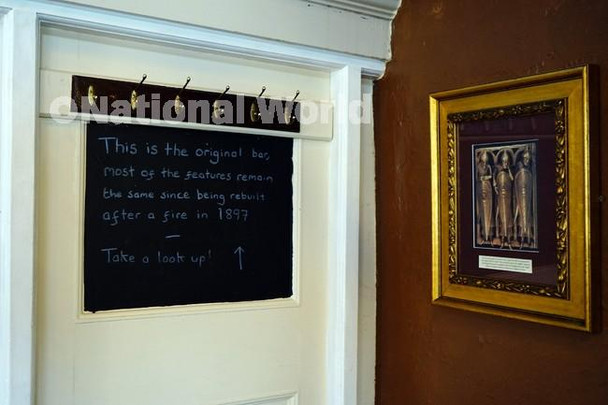 ©National World
This is the original bar,
most of the features remain
the same since being rebuilt
after a fire in 1897
–
Take a look up! ↑